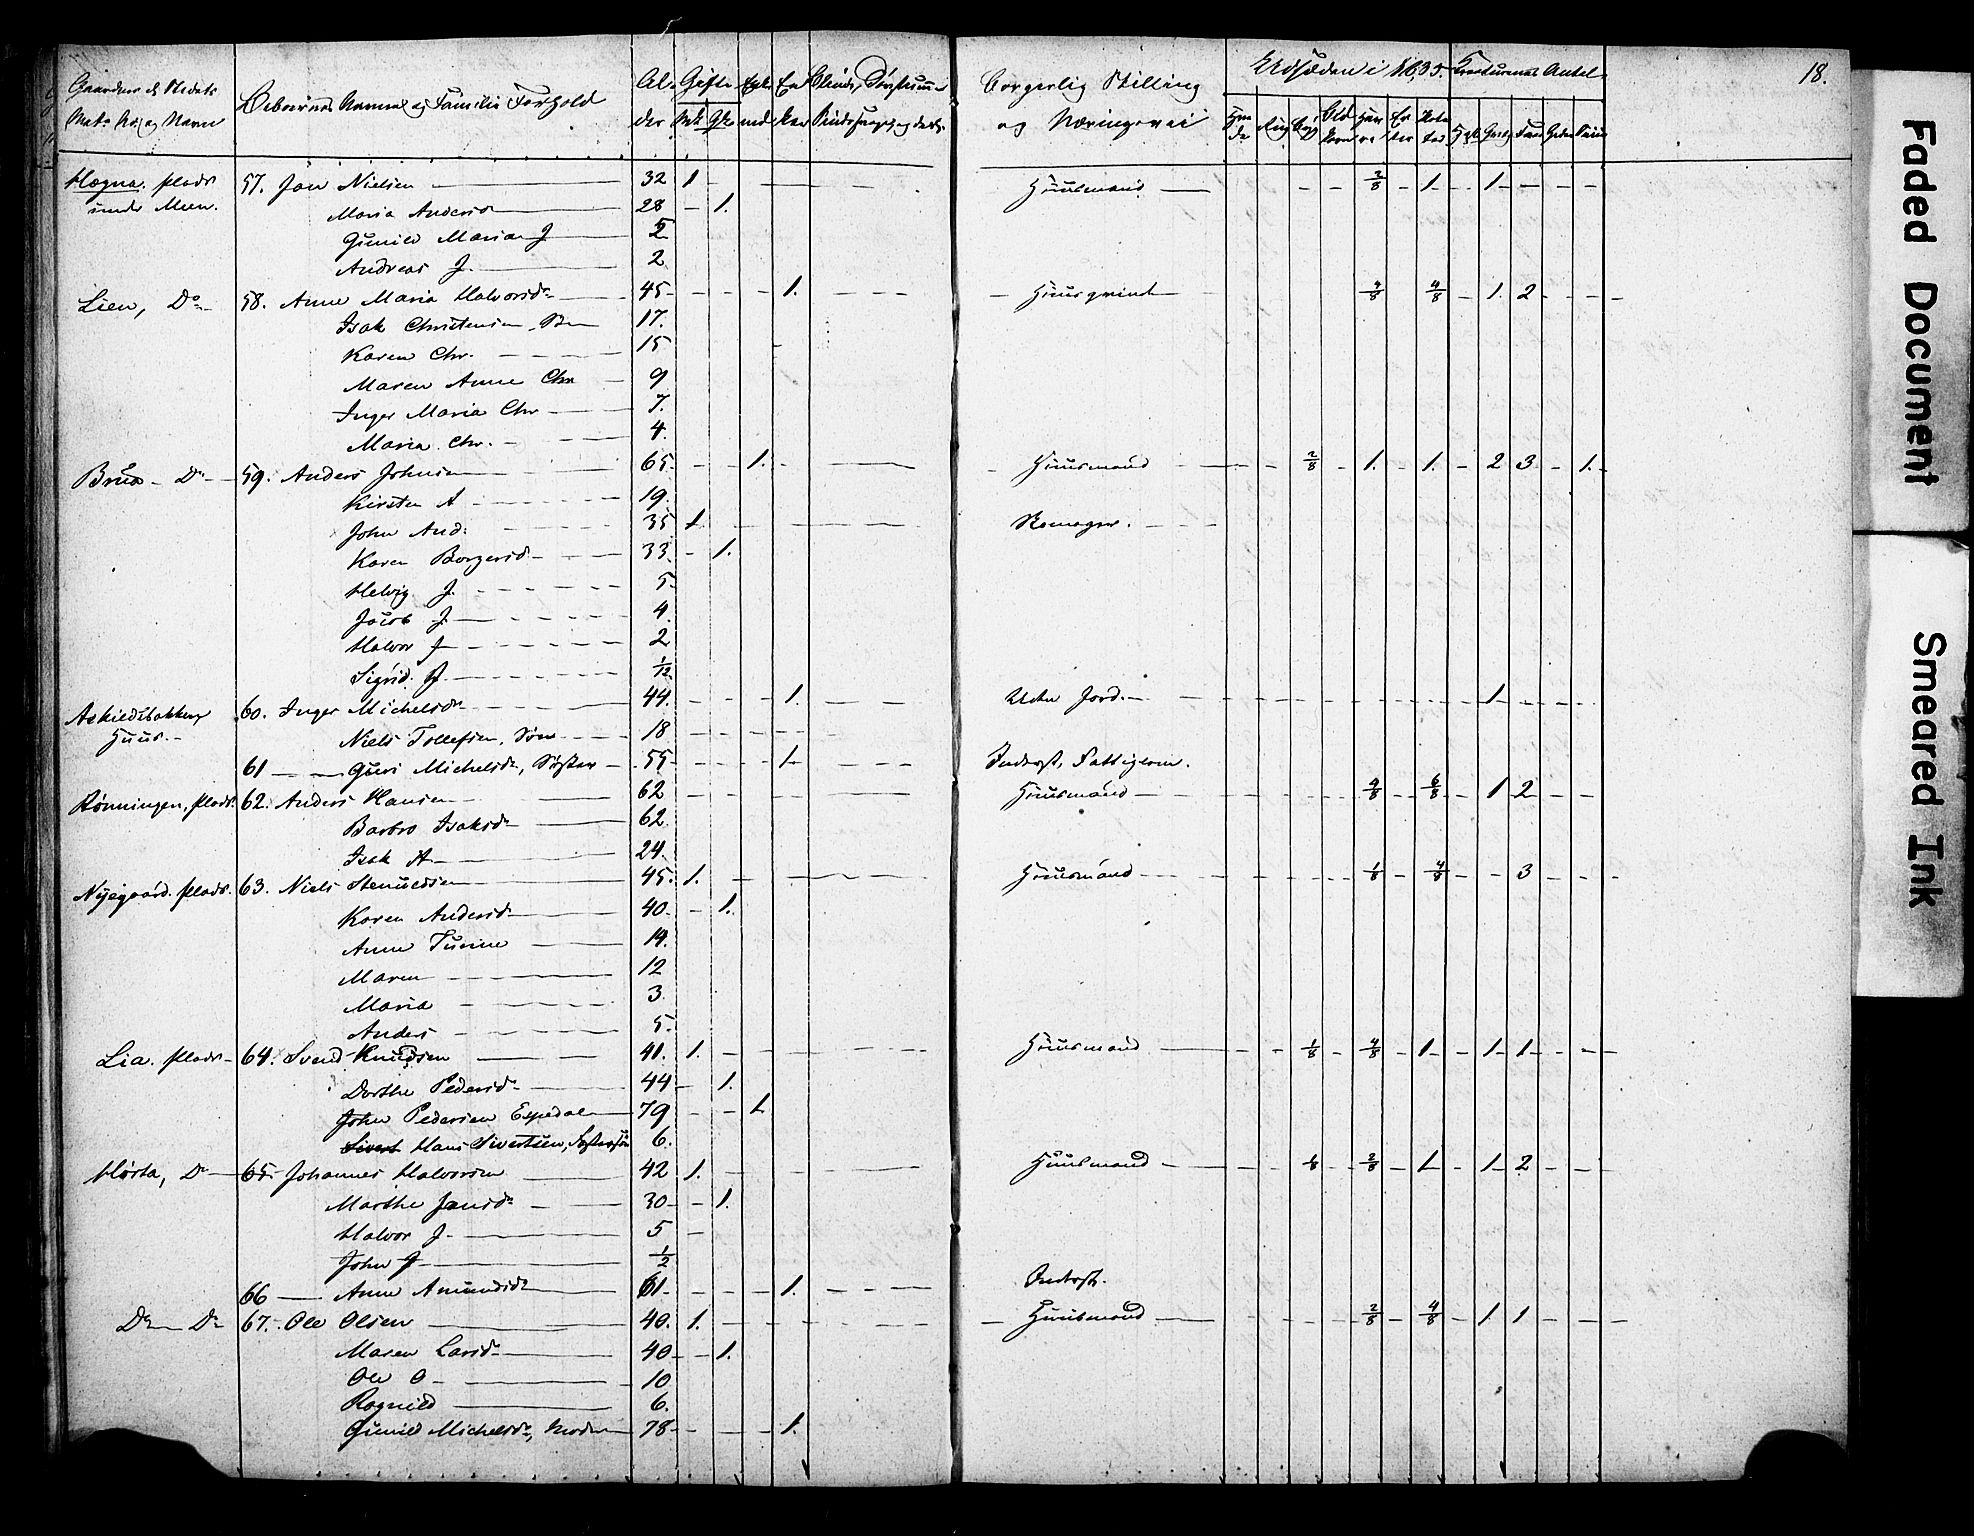 18.
Gaardens og Stedets Beboernes Navne og Familie Forhold Al- Gifte Blinde, Døvstumme Borgerlig Stilling Udsæden i 1835. Kreaturenes Antal
Matr. No. og Navn der Mk Qk og Næringsvei
Høgna. Plads 57. Jon Nielsen 32 1 Huusmand 2/8 1 1
under Meen. Maria Andersd 28 1.
Gunild Maria J 5
Andreas J. 2
Lien, Do 58. Anne Maria Halvorsd 45 1. Huusqvind 4/8 4/8 1. 2
Isak Christensen Søn 17.
Karen Chr. 15
Maren Anne Chr 9
Inger Maria Chr 7.
Maria Chr. 4.
Brua Do 59. Anders Johnsen 65 1. Huusmand 2/8 1. 1. 2 3 1.
Kirsten A 19.
John And. 35 1 Skomager.
Karen Borgersd 33 1.
Helvig J. 5
Jacob J. 4.
Halvor J 2
Sigrid J. 1/12
Askildsbakken 60. Inger Michelsd 44. 1. Uden Jord. 1
Huus. Niels Tollefsen, Søn 18
61 Guri Michelsd, Søster 55 1 Inderst, Fattiglem.
Rønningen, Plads 62. Anders Hansen 62 Huusmand 4/8 6/8 1 2
Barbro Isaksd 62
Isak A 24.
Nyegaard. Plads. 63. Niels Stenuldsen 45. 1. Huusmand 1/8 4/8 3
Karen Andersd 40. 1.
Anne Turine 14.
Maren 12
Maria 3.
Anders 5.
Lia. Plads 64. Svend Knudsen 41. 1. Huusmand 1/8 4/8 1 1 1
Dorthe Pedersd 44 1.
John Pedersen Espedal 79 1
Sivert Hans Sivertsen, Søstersøn 6.
Hørta, Do 65. Johannes Halvorsen 42 1. Huusmand 1/8 2/8 1 1 2
Marthe Jansd 30 1.
Halvor J. 5
John J 1/2
66 Anne Amundsd 61. 1. Inderst.
Do Do 67. Ole Olsen 40. 1. Huusmand 2/8 4/8 1 1
Maren Larsd 40 1.
Ole O 10
Ragnild 6.
Gunild Michelsd, Moder 78 1.
Faded Document
Smeared Ink